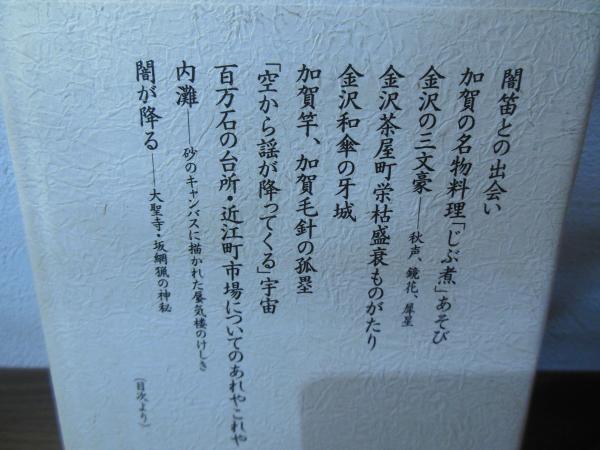 闇笛との出会い
加賀の名物料理「じぶ煮」あそび
金沢の三文豪――秋声、鏡花、犀星
金沢茶屋町栄枯盛衰ものがたり
金沢和傘の牙城
加賀竿、加賀毛針の孤塁
「空から謡が降ってくる」宇宙
百万石の台所・近江町市場についてのあれやこれや
内灘――砂のキャンバスに描かれた蜃気楼のけしき
闇が降る――大聖寺・坂網猟の神秘
（目次より）